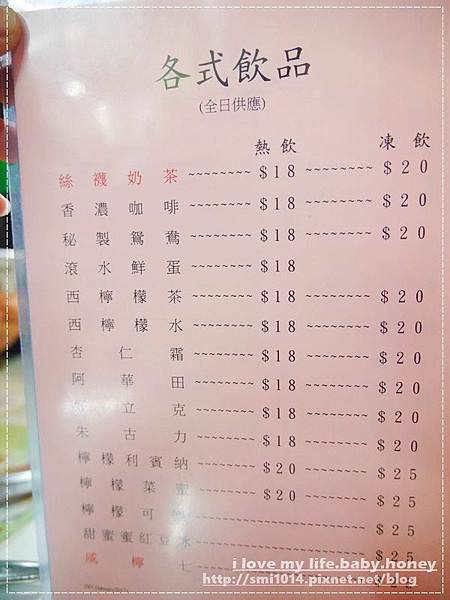 各式飲品
(全日供應)
熱飲 凍飲
絲襪奶茶 ~~~~~~~~ $18 ~~~~~~~~ $20
香濃咖啡 ~~~~~~~~ $18 ~~~~~~~~ $20
秘製鴛鴦 ~~~~~~~~ $18 ~~~~~~~~ $20
滾水鮮蛋 ~~~~~~~~ $18
西檸檬茶 ~~~~~~~~ $18 ~~~~~~~~ $20
西檸檬水 ~~~~~~~~ $18 ~~~~~~~~ $20
杏仁霜 ~~~~~~~~ $18 ~~~~~~~~ $20
阿華田 ~~~~~~~~ $18 ~~~~~~~~ $20
立克 ~~~~~~~~ $18 ~~~~~~~~ $20
朱古力 ~~~~~~~~ $18 ~~~~~~~~ $20
檸檬利賓納 ~~~~~~~~ $20 ~~~~~~~~ $25
檸檬菜蜜 ~~~~~~~~ $20 ~~~~~~~~ $25
檸檬可 $25
甜蜜蜜紅豆冰 $25
咸檸七
i love my life.baby.honey
http://smi1014.pixnet.net/blog